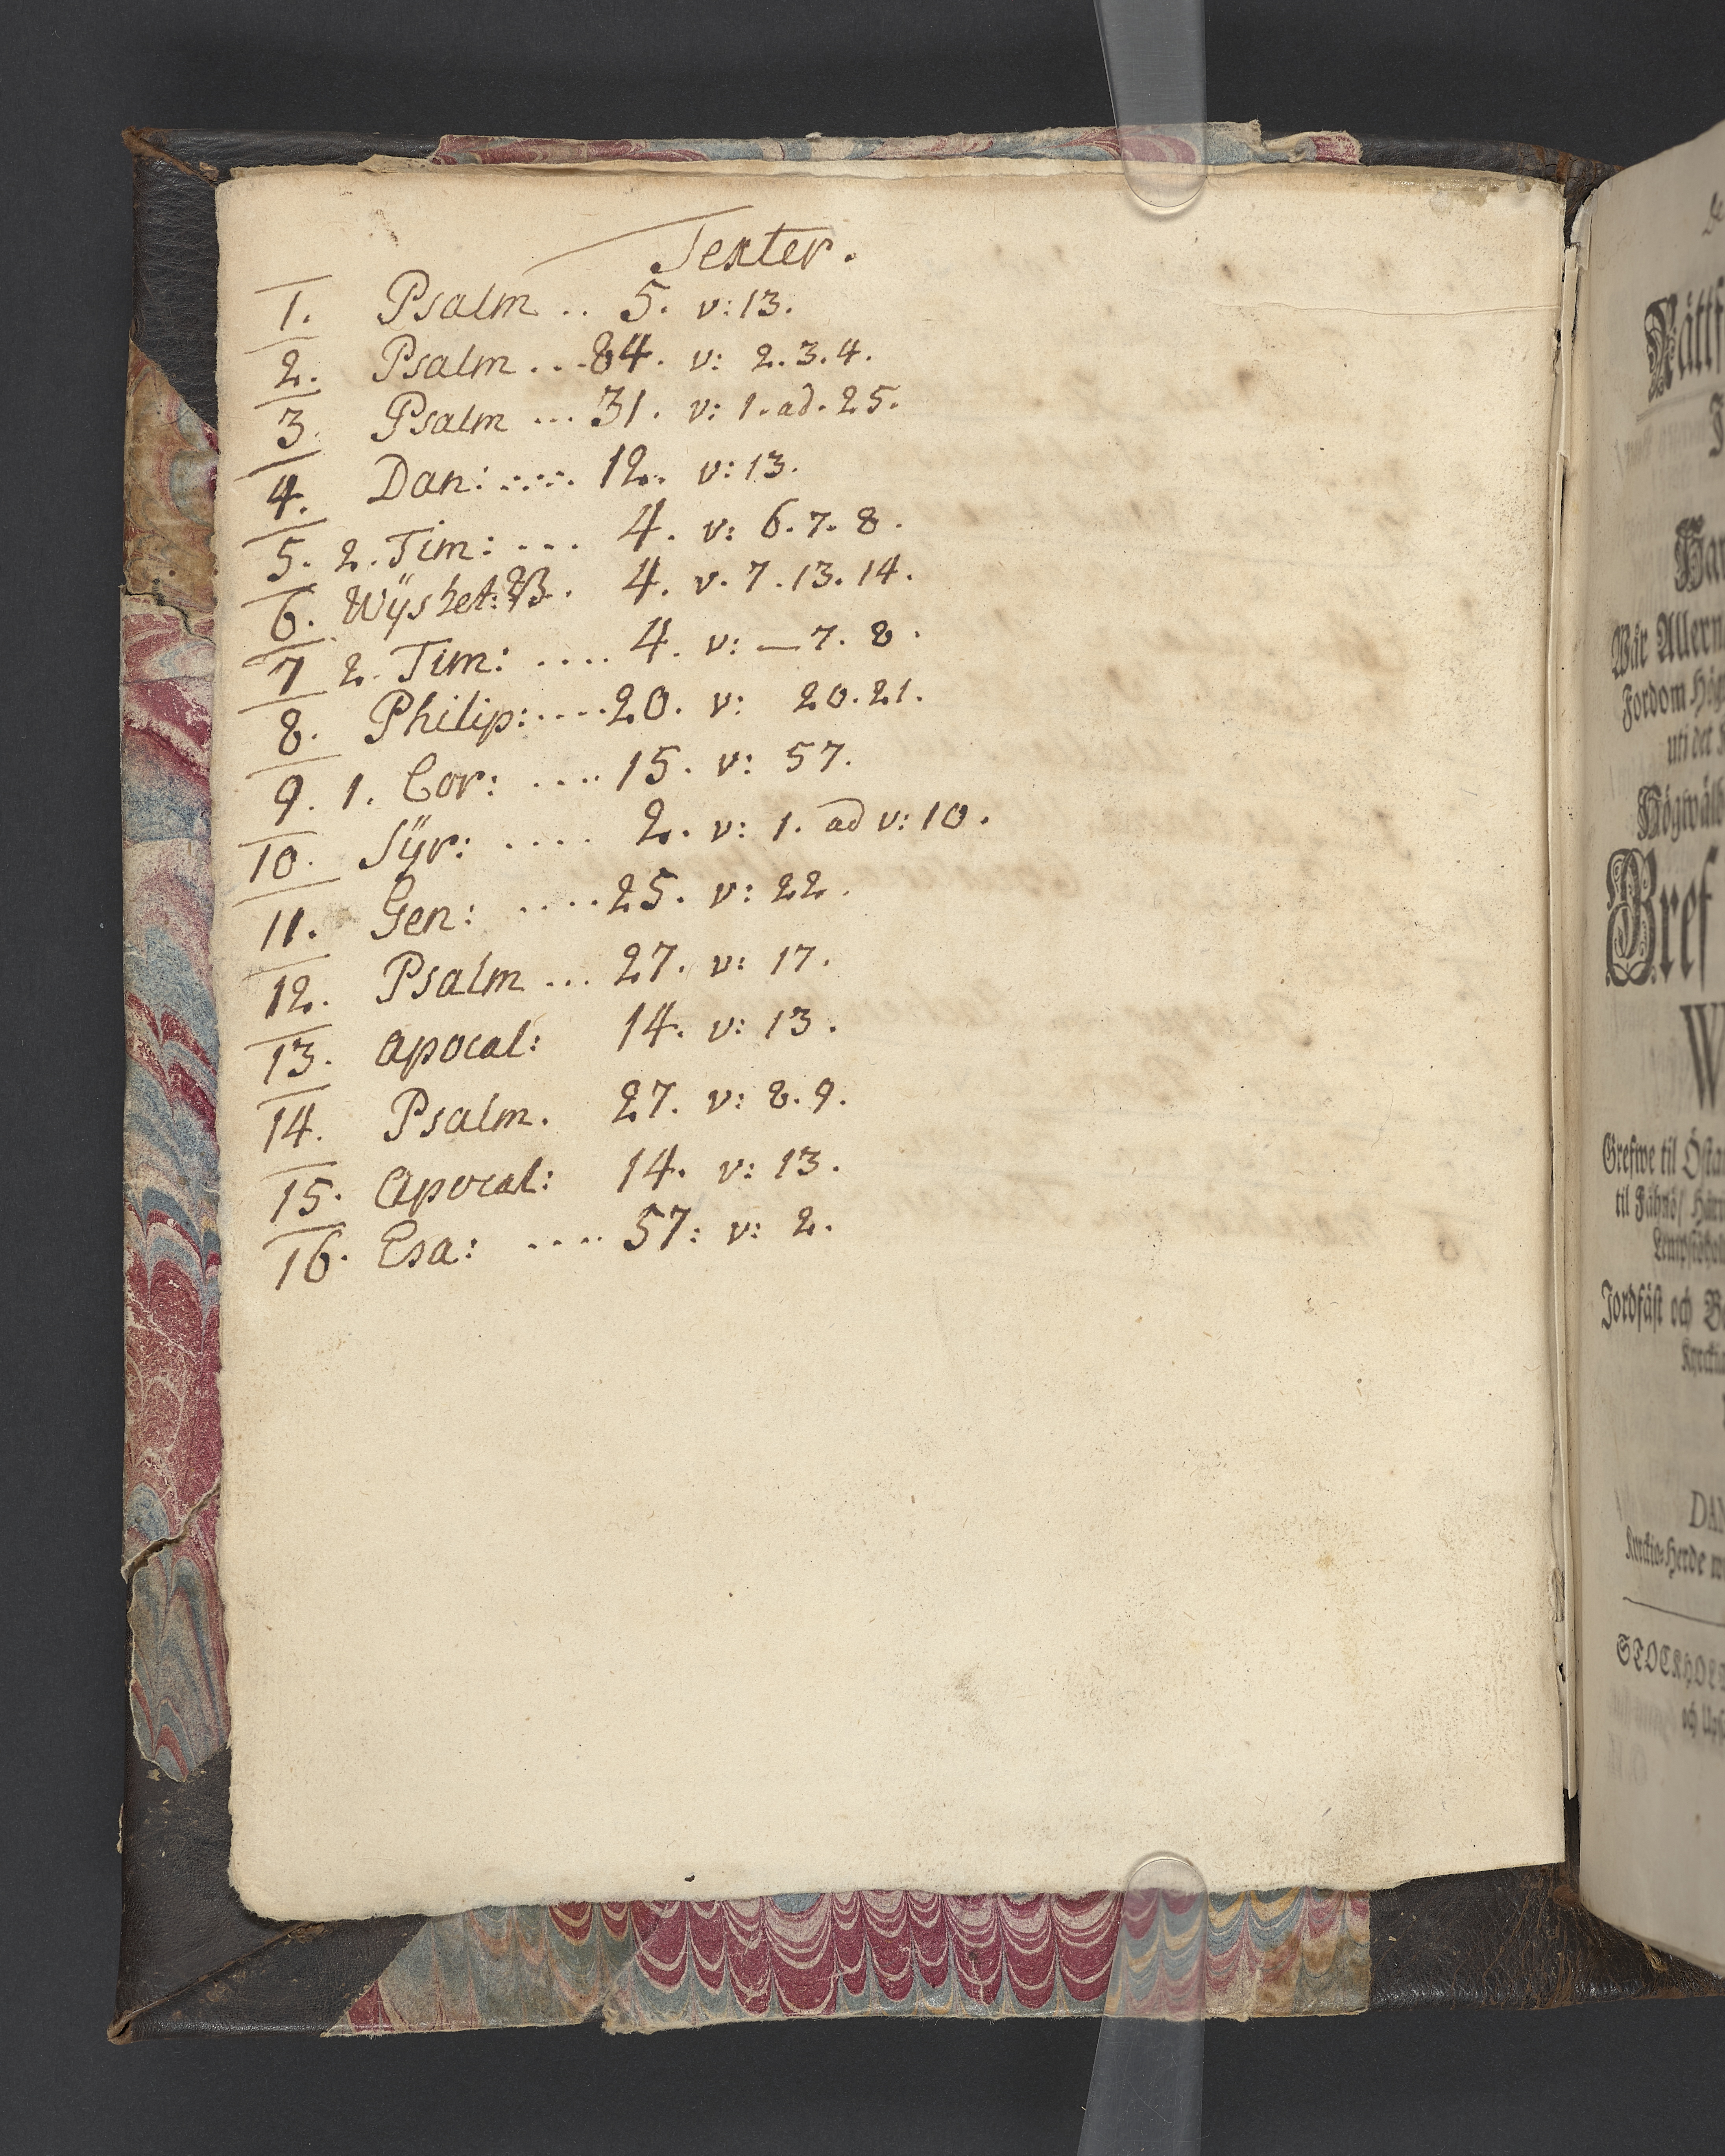 Texter.
1. Psalm .. 5. v: 13.
2. Psalm ... 84. v: 2. 3. 4.
3. Psalm ... 31. v: 1. ad. 25.
4. Dan: .... 12. v: 13.
5. 2. Tim: ... 4. v: 6. 7. 8.
6. Wÿshet: B. 4. v. 7. 13. 14.
7 2. Tim: .... 4. v: — 7. 8.
8. Philip: .... 20. v: 20. 21.
9. 1. Cor: .... 15. v: 57.
10. Sÿr: .... 2. v: 1. ad v: 10.
11. Gen: .... 25. v: 22.
12. Psalm ... 27. v: 17.
13. Apocal: 14. v: 13.
14. Psalm. 27. v: 8. 9.
15. Apocal: 14. v: 13.
16. Esa: .... 57: v: 2.
Wår Allern
Fordom Hög
uti det
Högwälb
Gref
W
Grefwe til Östa
til Fåhnös/
Jordfäst och B
DAN
STOCKHOL